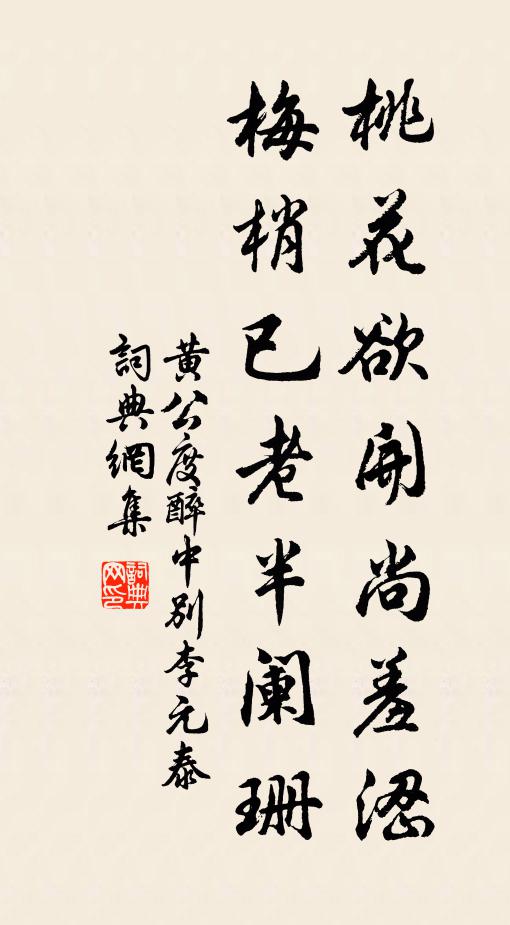 桃花欲開尚羞澀
梅梢已老半闌珊
黃公度醉中別李元泰
詞典網集
詞典
网印